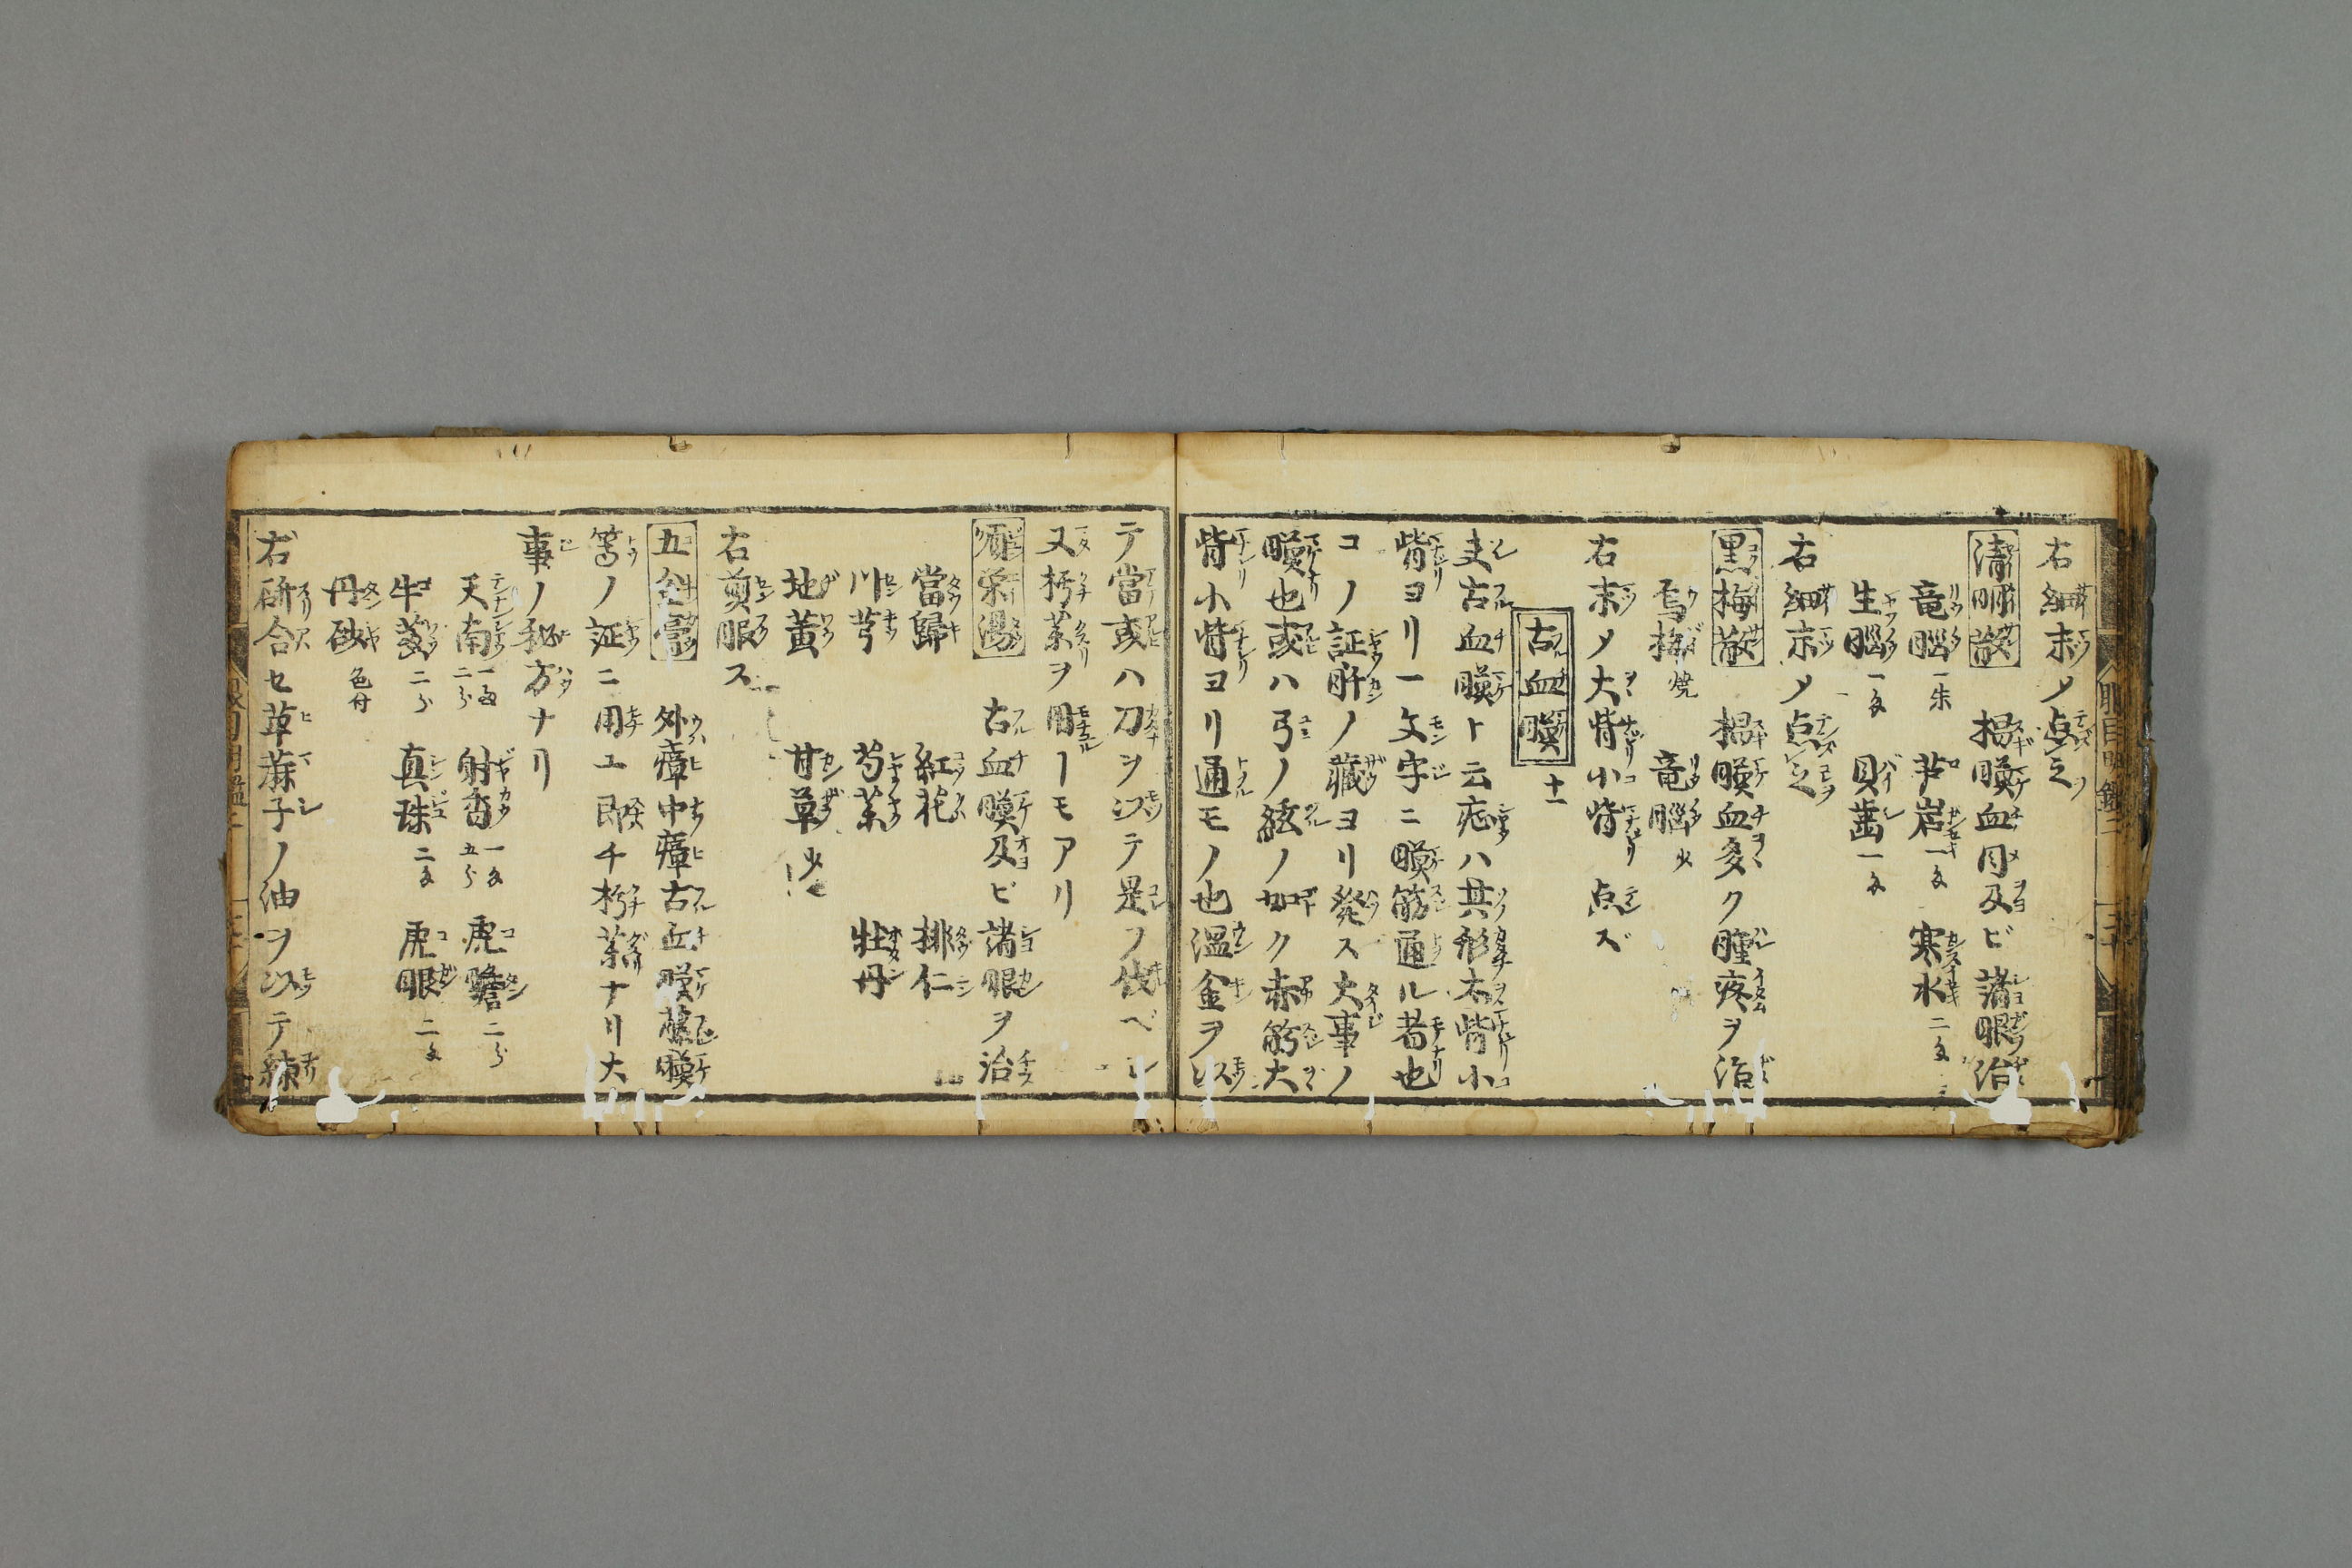 右細末メ点之
清明散 𣝣瞙血同及ビ諸眼治
竜腦一朱 芦岩一匁 寒水二匁
生腦一匁 貝歯一匁
右細末メ点之
黒梅散 瞙血多ク腫疼ヲ治
烏梅焼 竜腦少
右末メ大眥小眥点ズ
古血瞙 十一
夫古血瞙ト云症ハ其形大眥小
眥ヨリ一文字ニ瞙筋通ル者也
コノ証肝ノ藏ヨリ発ス大事ノ
瞙也或ハ弓ノ絃ノ如ク赤筋大
眥小眥ヨリ通モノ也温金ヲ以
テ當或ハ刀ヲ以テ是ヲ伐ベシ
又薬ヲ用ーモアリ
栄湯 古血瞙及ビ諸眼ヲ治
當歸 紅花 排仁
川芎 芍薬 牡丹
地黄 甘草少
右煎服ス
五膏 外瘴中瘴古血瞙瞙
等ノ証ニ用ユ即チ薬ナリ大
事ノ秘方ナリ
天南一匁二分 射香一匁五分 虎膽二分
牛二分 真珠二匁 虎眼二匁
丹砂色付
右研合セ草蔴子ノ油ヲ以テ練
眼目明鑑二